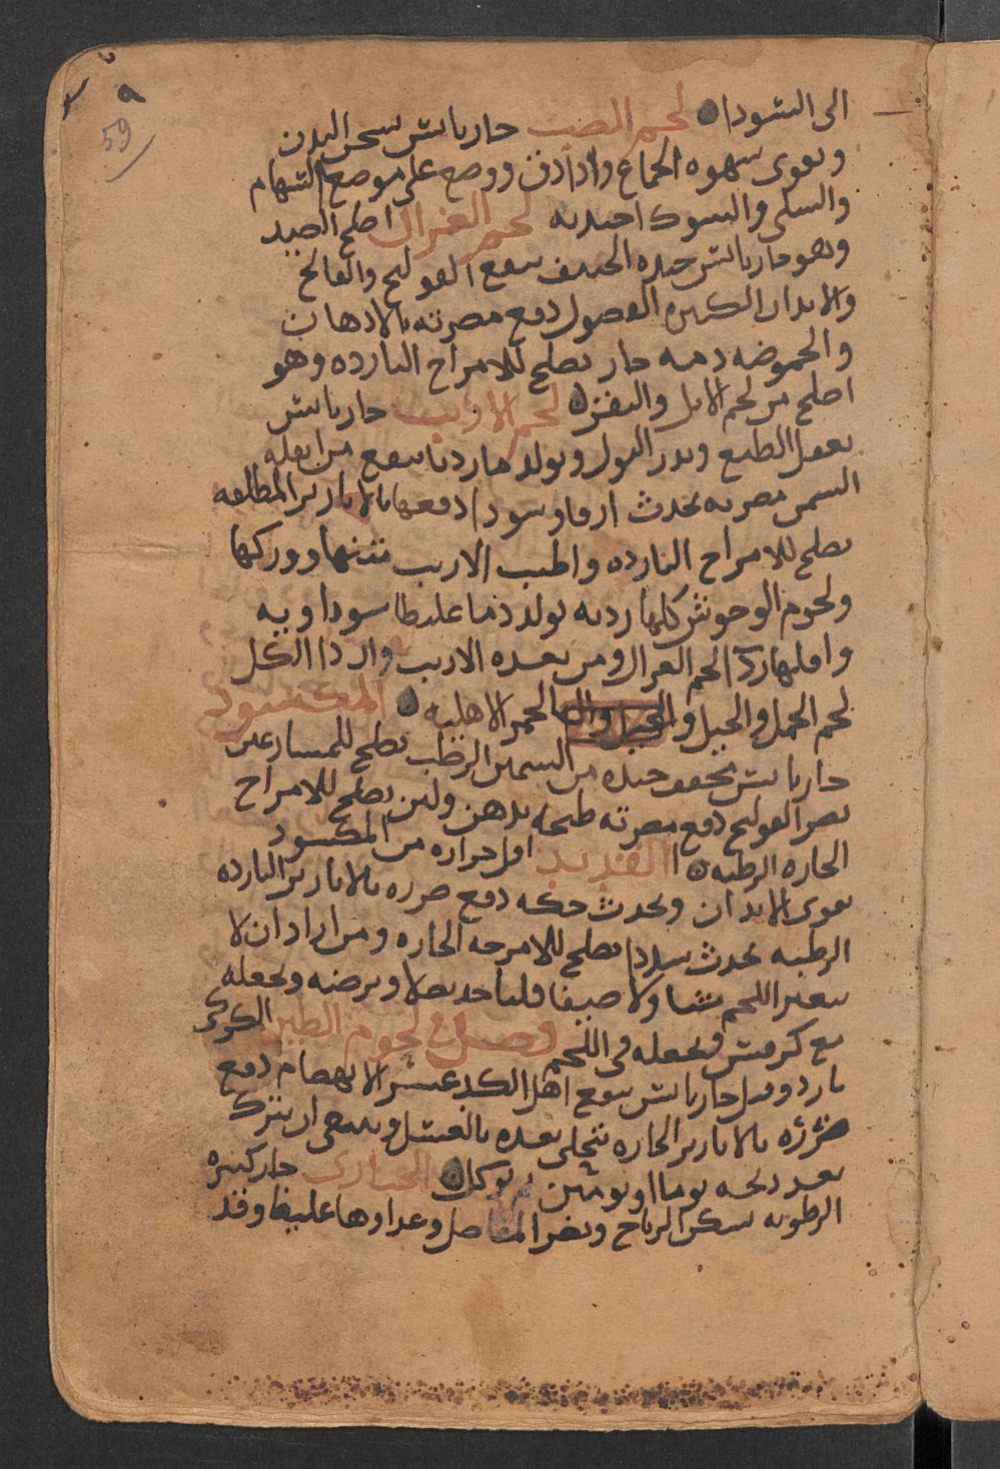 59
الى السودا ه لحم الضب حار يابس يسخن البدن
ويقوى شهوة الجماع واذا دق ووضع على موضع السهام
والسلى والشوك اجتذبه لحم الغزال اصلح الصيد
وهو حار يابس جيده الخشف ينفع القولنج والفالج
والابدان الكثيرة الفضول دفع مضرته بالادهان
والحموضه دمه حار يصلح للامزاج البارده وهو
اصلح من لحم الايل والبقر ه لحم الارنب حار يابس
يعقل الطبع ويدر البول ويولد ما رديا ينفع من ابعله
السمن مضرته يحدث ارقا وسودا دفعها بالابازير المطلفه
يصلح للامزاج البارده واطيب الارنب متنها ووركها
ولحوم الوحوش كلها رديه تولد دما غليظا سوداويه
واقلها رداة لحم الغزال ومن بعده الارنب واردا الكل
لحم الجمل والخيل و الحمر الاهليه ه المكسود
حار يابس مجفف جيده من السمين الرطب يصلح للمسارعين
يضر القولنج دفع مضرته طبخه بدهن ولبن يصلح للامزاج
الحاره الرطبه ه القديد اقل حراره من المكسود
يقوى الابدان ويحدث حكه دفع ضرره بالابازير البارده
الرطبه يحدث سددا يصلح للامزجه الحاره ومن اراد ان لا
يتغير اللحم شتا ولا صيفا فلياخذ بصلا ويرضه ويجعله
مع كرفس ويجعله فى اللحم فصل فى لحوم الطير الكركى
بارد وقيل حار يابس ينفع اهل الكد عسر الانهضام دفع
ضرره بالابازير الحاره يتحلى بعده بالعسل وينبغى ان يترك
بعد ذبحه يوما او يومين ثم يوكل ه الحبارى حار كثيره
الرطوبه يسكن الرياح ويضر المفاصل وغداوها غليظا وقد